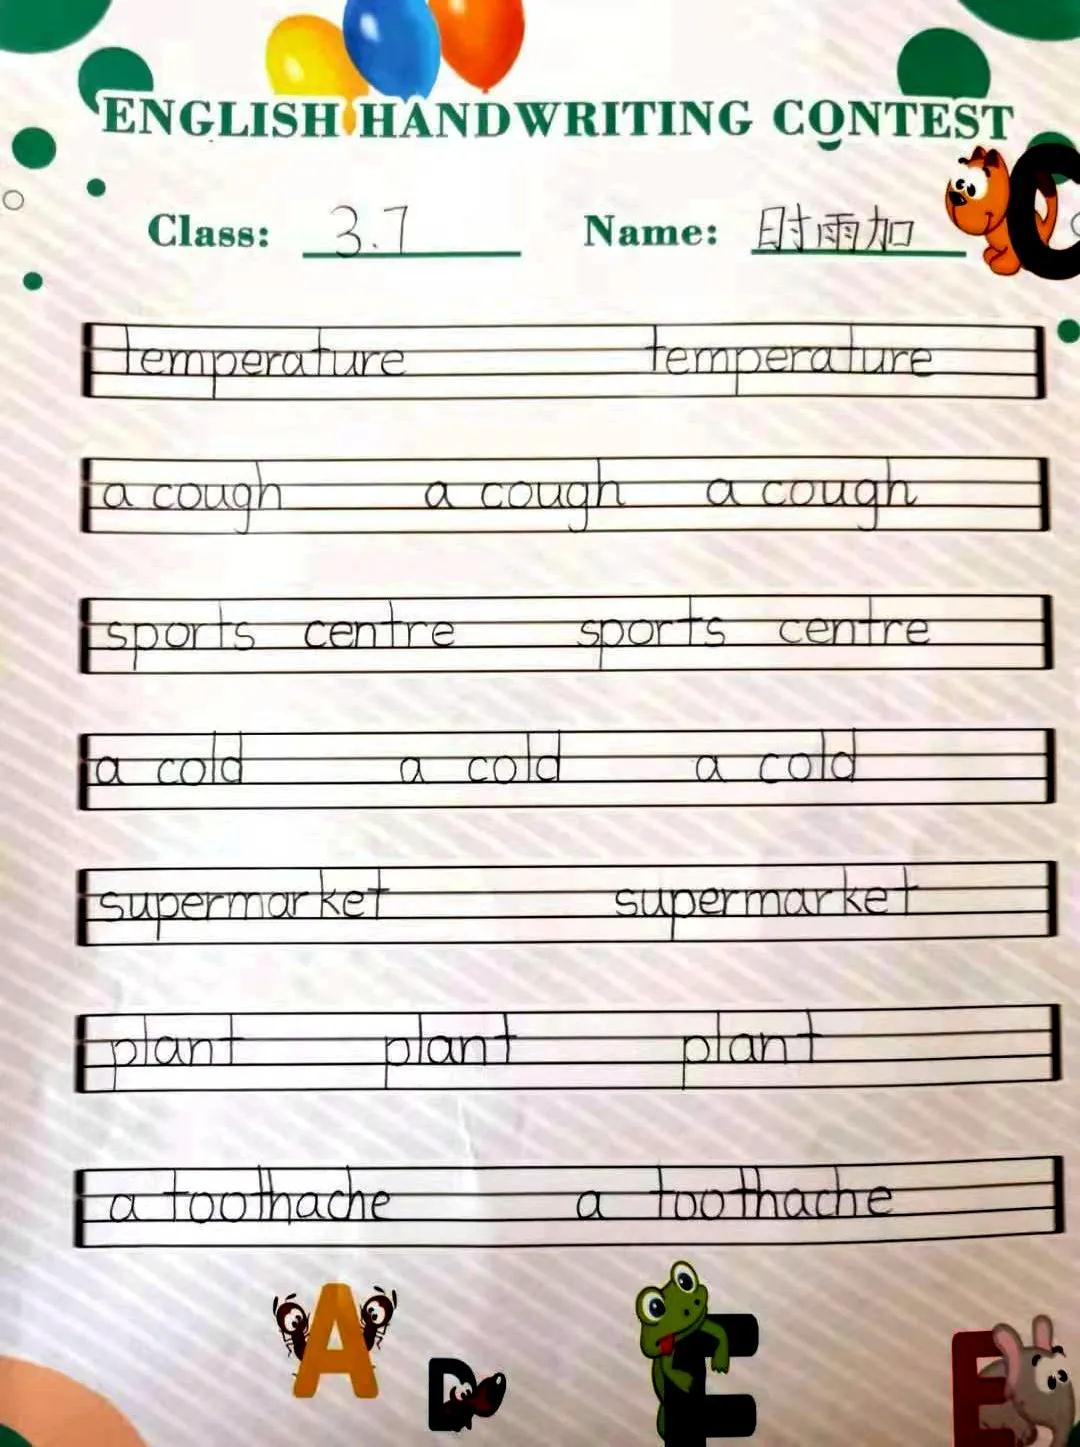 ENGLISH HANDWRITING CONTEST
Class: 3.7 Name: 时雨加
temperature temperature
a cough a cough a cough
sports centre sports centre
a cold a cold a cold
supermarket supermarket
plant plant plant
a toothache a toothache
C
A D E E